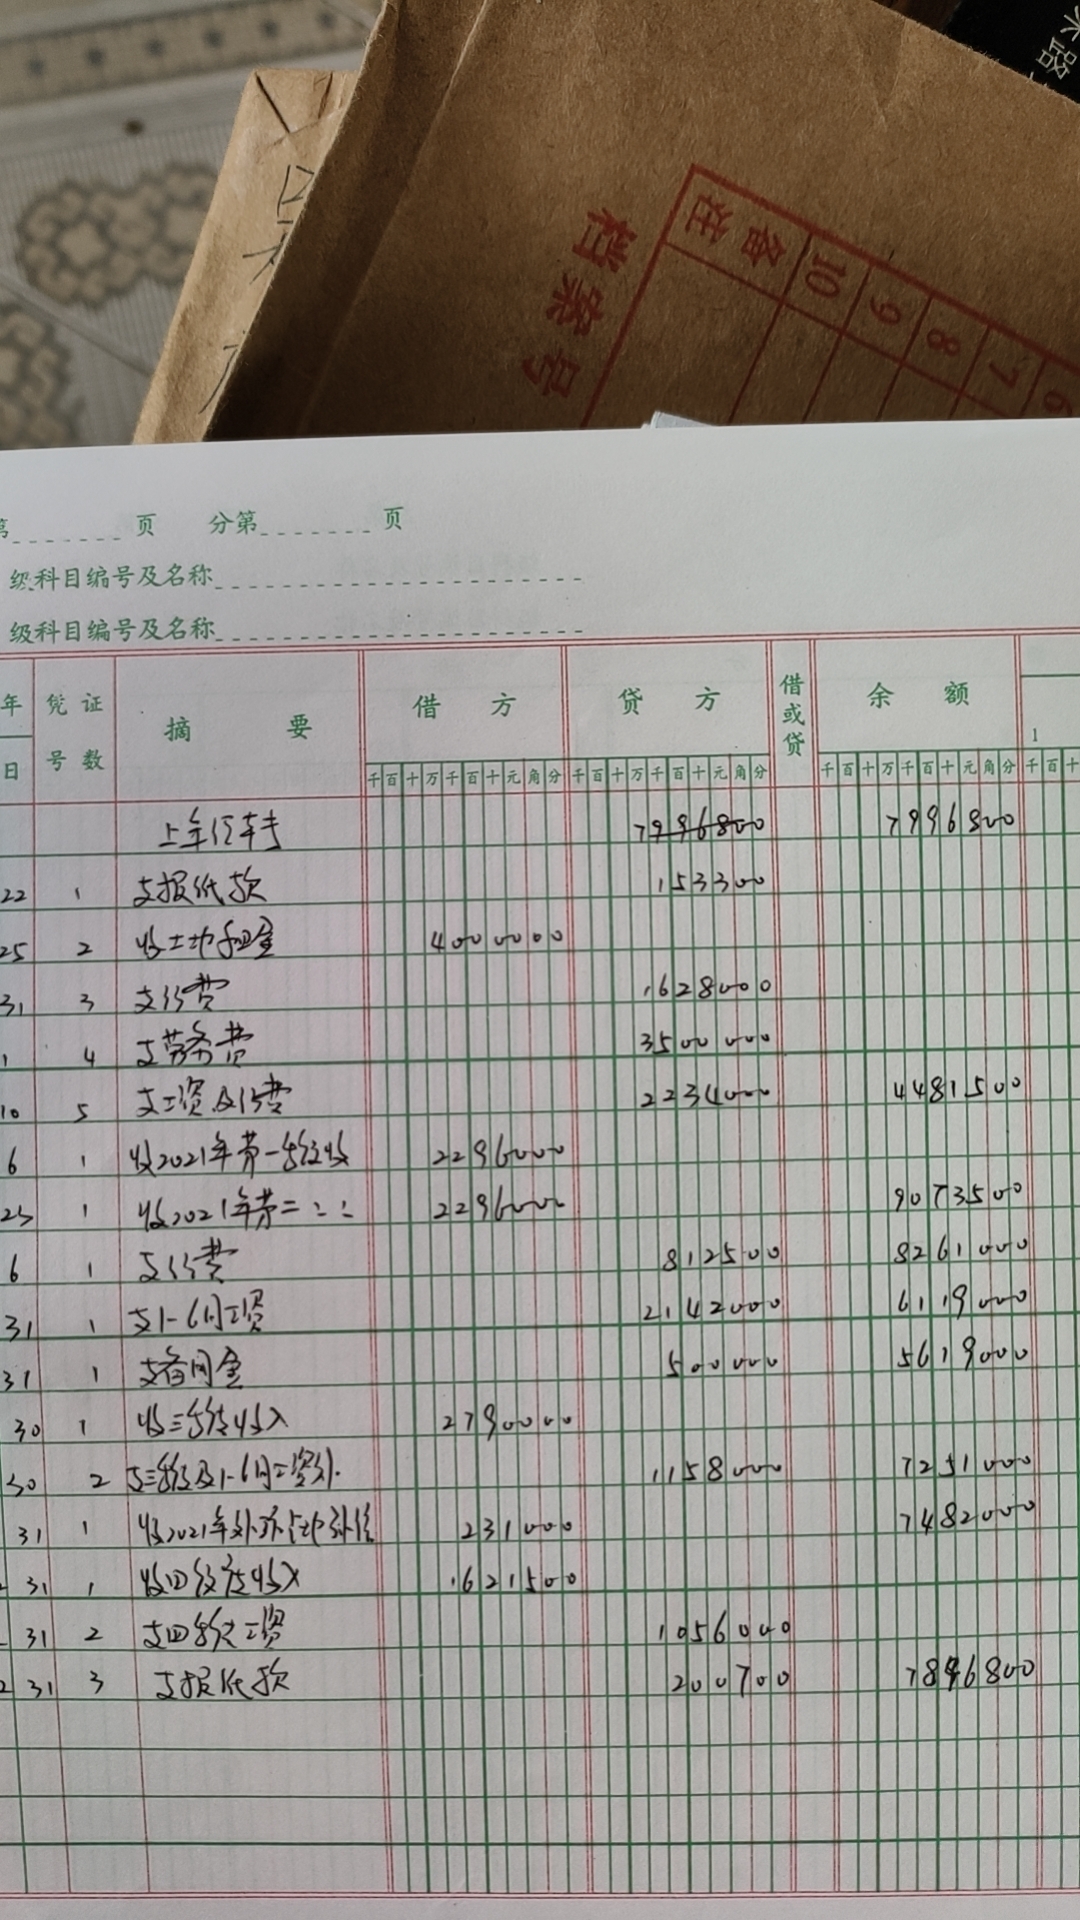 米路
档案号
备注
10
9
8
7
6
第 页 分第 页
级科目编号及名称
级科目编号及名称
年 凭证 摘要 借方 贷方 借或贷 余额
日 号数 千百十万千百十元角分 千百十万千百十元角分 千百十万千百十元角分 千百十
1
上年结转 7996800 7996800
22 1 支报纸款 153300
25 2 收土地租金 4000000
31 3 支付费 1628000
1 4 支劳务费 3500000
10 5 支工资及付费 2234000 4481500
6 1 收2021年第一 收 2296000
25 1 收2021年第二 〃 〃 2296000 9073500
6 1 支付费 812500 8261000
31 1 支1-6月工资 2142000 6119000
31 1 支备用金 500000 5619000
30 1 收三 收入 2790000
30 2 支三 及1-6月工资 1158000 7251000
31 1 收2021年外环占地补偿 231000 7482000
31 1 收四 收入 1621500
31 2 支四 工资 1056000
2 31 3 支报纸款 200700 7846800